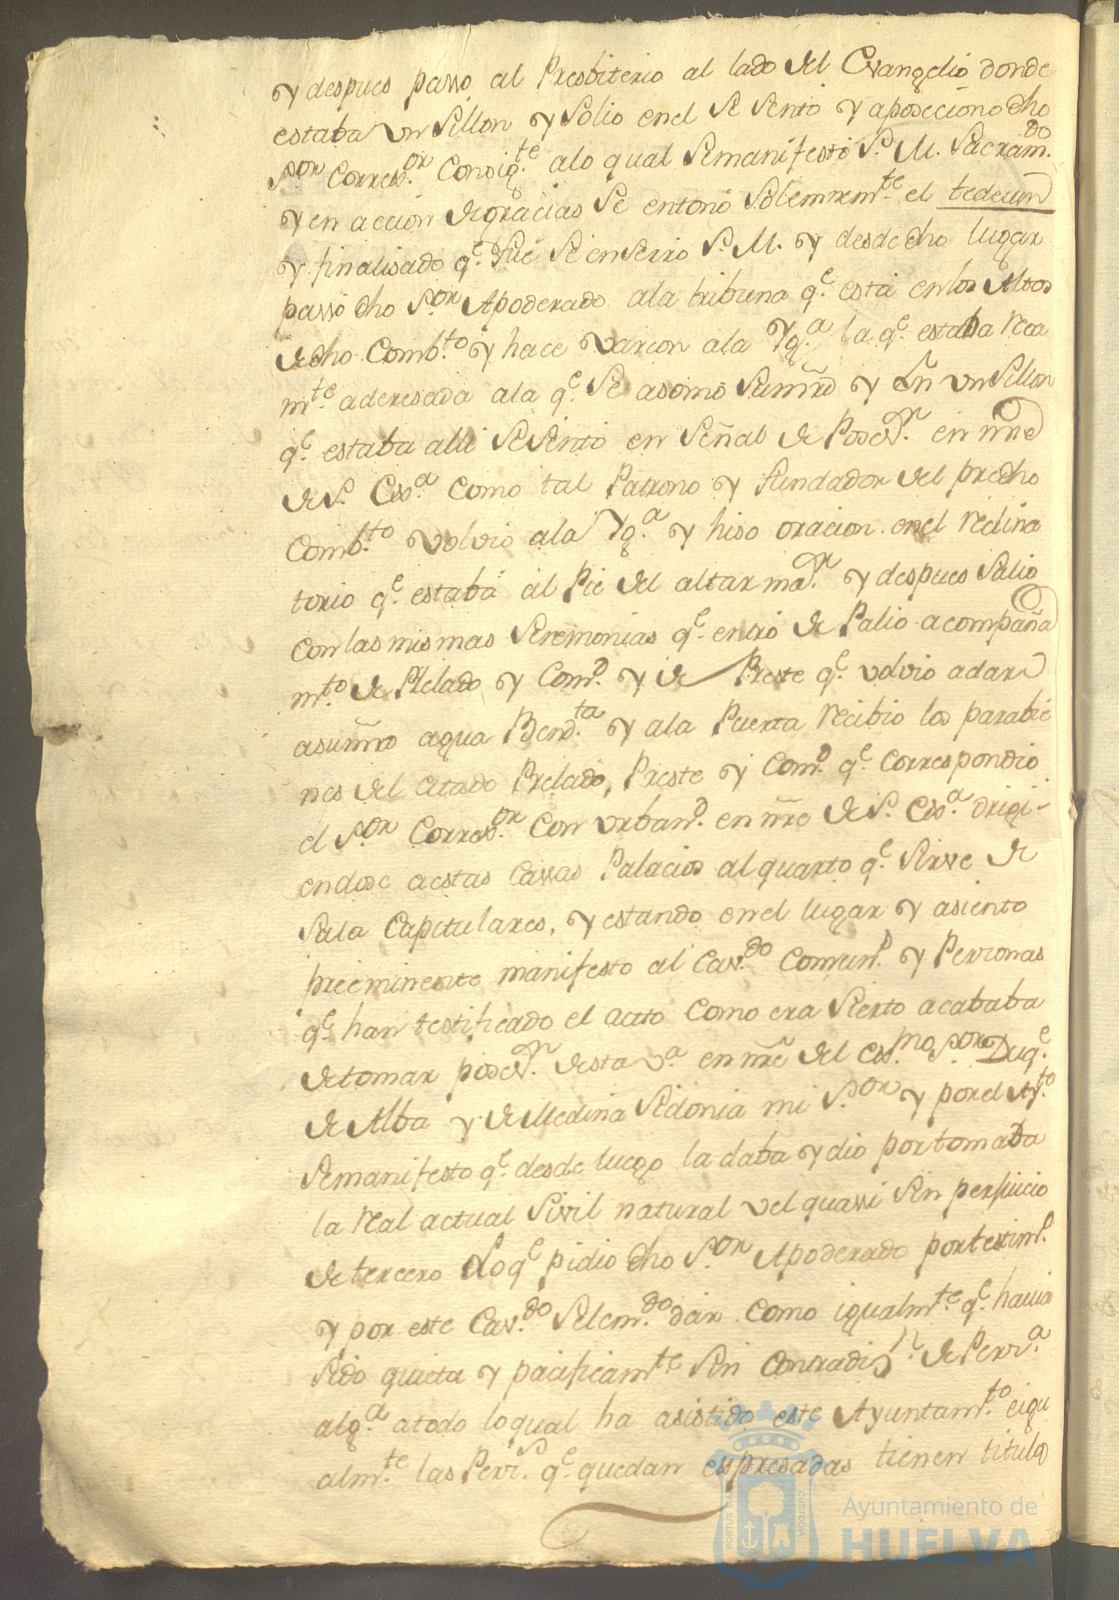 y despues passo al Presbiterio al lado del Evangelio donde
estaba un Sillon y Solio en el Se Sento y aposeciono dho
S.or Corres.or Consig.te alo qual Se manifesto S. M. Sacram.do
y en accion de gracias Se entonó Solemnem.te el tedeum
y finalisado q.e fue Se enserro S. M. y desde dho lugar
passo dho S.or Apoderado ala tribuna q.e está en los Altos
de dho Comb.to y hace varcon ala Yg.a la q.e estaba rica
m.te aderesada ala q.e Se asomó Su mrd y en un Sillon
q.e estaba alli Se Sentó en Señas de Poses.n en nre
de S. Exs.a como tal Patrono y fundador del predho
Comb.to volvio ala Yg.a y hiso oracion en el reclina
torio q.e estaba al Pie del altar ma.r y despues Salio
con las mismas Seremonias q.e entró de Palio acompaña
m.to de Prelado y Com.d y de Preste q.e volvio a dar
a su mrd agua Bend.ta y ala Puerta recibio los parabie
nes del citado Prelado, Preste y Com.d q.e correspondio
el S.or Corres.or con urban.d en nre de S. Exs.a dirigi-
endose a estas Cassas Palacios al quarto q.e Sirve de
Sala Capitulares, y estando en el lugar y asiento
preeminente manifesto al Cav.do Comun.d y Perssonas
q.e han testificado el acto como era Sierto acababa
de tomar poses.n desta V.a en nre del Exs.mo S.or Duq.e
de Alba y de Medina Sidonia mi S.or y por el Ay.to
Se manifesto q.e desde luego la daba y dio por tomada
la real actual Sivil natural vel quassi Sin perjuicio
de tercero Lo q.e pidio dho S.or Apoderado por testim.o
y por este Cav.do Sele m.do dar como igualm.te q.e havia
Sido quieta y pacificam.te Sin contradis.n de Perss.a
alg.a a todo lo qual ha asistido este Ayuntam.to e igu
alm.te las Perss.s q.e quedan espresadas tienen titulo
Ayuntamiento de
HUELVA